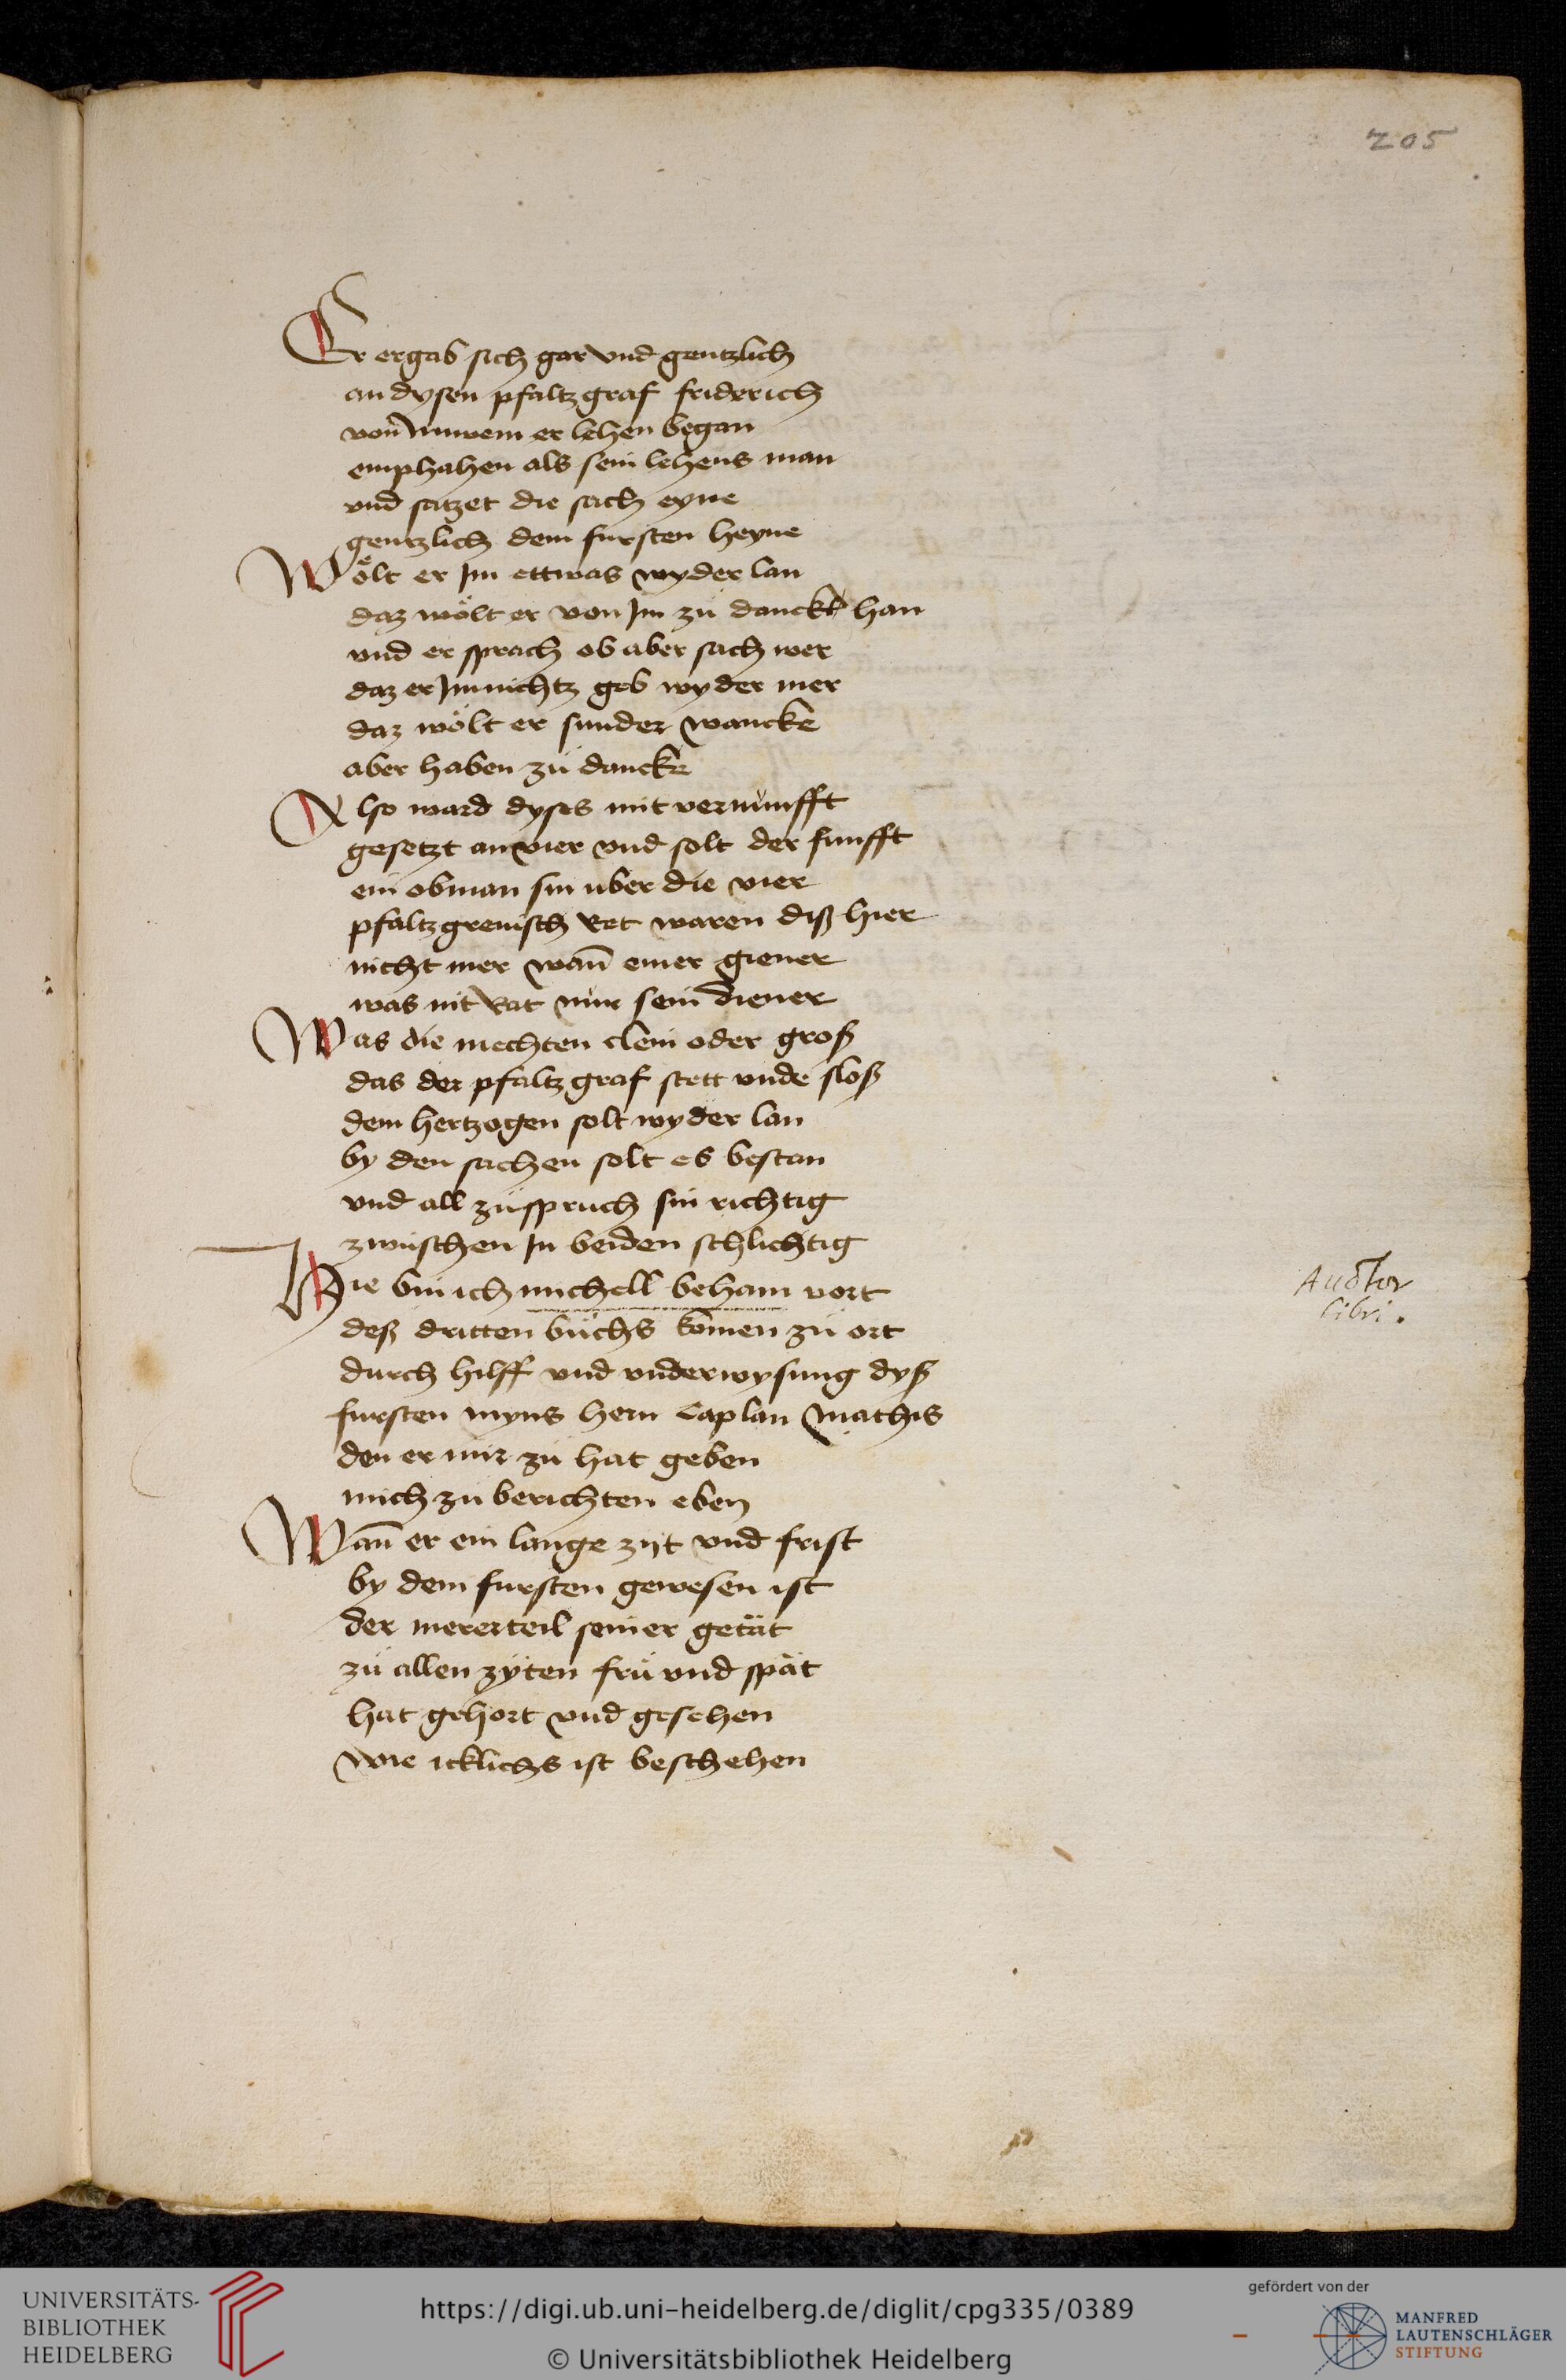 205
Er ergab sich gar vnd gentzlich
an dysen pfaltzgraf friderich
von nuwem er lehen began
emphahen als sein lehens man
vnd satzet die sach eyne
gentzlich dem fursten heyne
Wölt er Jm ettwas wyder lan
daz wölt er von Jm zü danckb han
vnd er sprach ob aber sach wer
daz er Jm nichtz geb wyder mer
daz wölt er sunder wancke
aber haben zü dancke
Also ward dyses mit vernunfft
gesetzt an vier vnd solt der funfft
ein obman sin uber die vier
pfaltzgrevisch Ret waren diß hier
nicht mer wan̄ einer giener
was nit Rat nur sein diener
Was die mechten clein oder groß
das der pfaltzgraf stett vnde sloß
dem hertzogen solt wyder lan
by den sachen solt es bestan
vnd all züspruch sin richtig
zwüschen Jn beiden schlichtig
Hie bin ich michell beham vort
deß dritten büchs komen zü ort
durch hilff vnd vnderwysung dyß
fursten myns hern caplan mathis
den er mir zü hat geben
mich zu berichten eben
Auctor
libri.
Wan̄ er ein lange zijt vnd frist
by dem fursten gewesen ist
der mererteil seiner getät
zü allen zyten frü vnd spät
hat gehort vnd gesehen
wie icklichs ist beschehen
UNIVERSITÄTS-
BIBLIOTHEK
HEIDELBERG
https://digi.ub.uni-heidelberg.de/diglit/cpg335/0389
© Universitätsbibliothek Heidelberg
gefördert von der
MANFRED
LAUTENSCHLÄGER
STIFTUNG